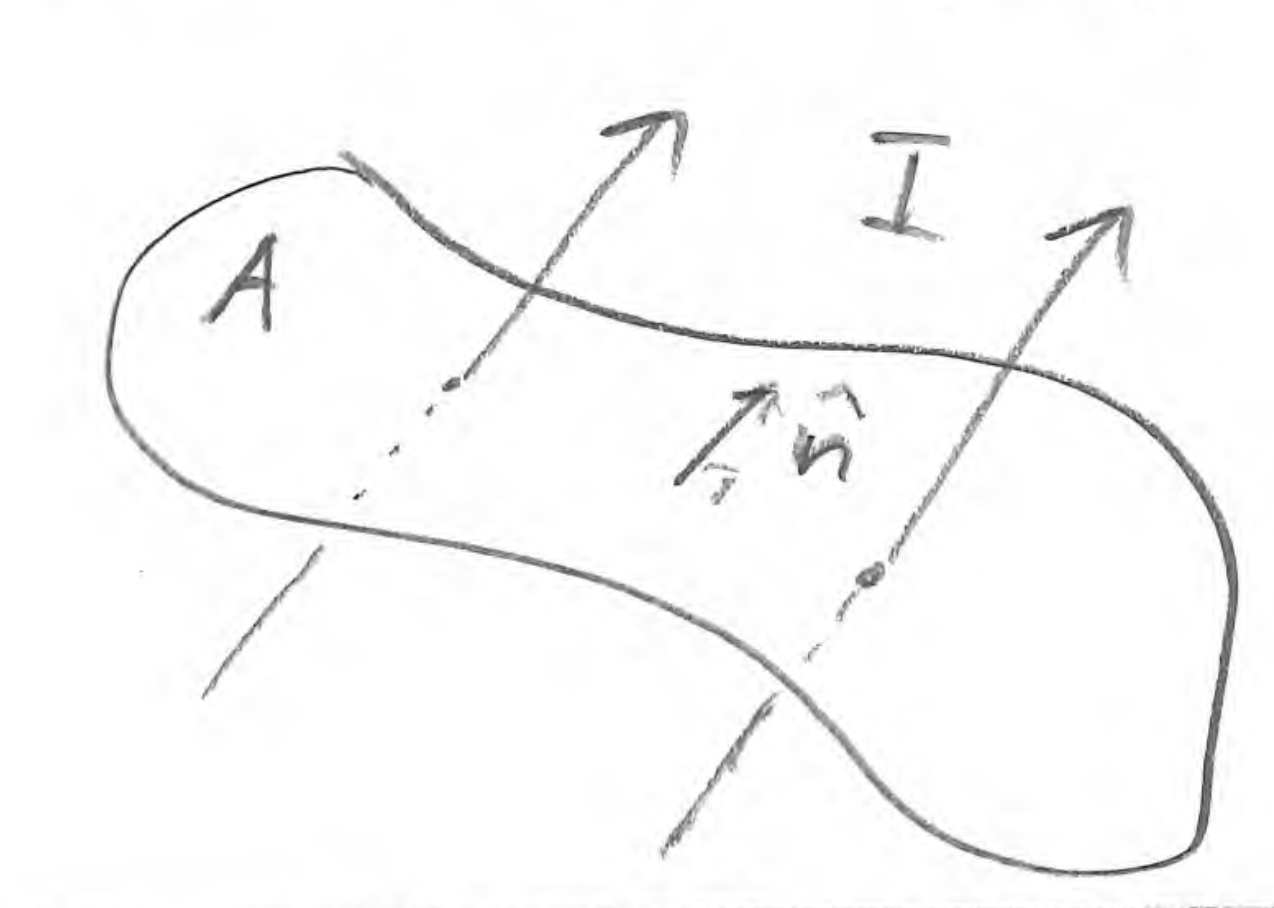 I
A
n̂